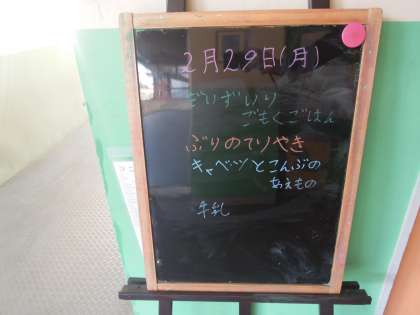 2月29日(月)
だいずいり
ごもくごはん
ぶりのてりやき
キャベツとこんぶの
あえもの
牛乳